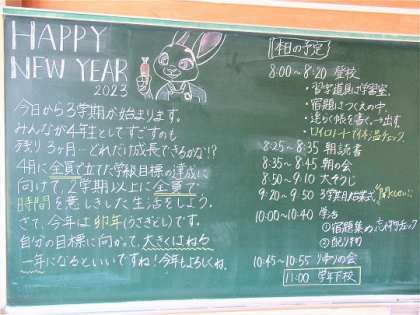 HAPPY
NEW YEAR
2023
今日から3学期が始まります。
みんなが4年生としてすごすのも
残り3ヶ月…どれだけ成長できるかな!?
4月に全員で立てた学級目標の達成に
向けて、2学期以上に全員で
時間を意しきした生活をしよう。
さて、今年は卯年(うさぎどし)です。
自分の目標に向かって、大きくはねる
一年になるといいですね!今年もよろしくね。
本日の予定
8:00~8:20 登校
・習字道具は学習室
・宿題はつくえの中
・連らく帳を書く→出す
・ロイロノートで体温チェック
8:25~8:35 朝読書
8:35~8:45 朝の会
8:50~9:10 大そうじ
9:20~9:50 3学期始業式
10:00~10:40 学活
①宿題集め
②配り物
10:45~10:55 帰りの会
11:00 学年下校